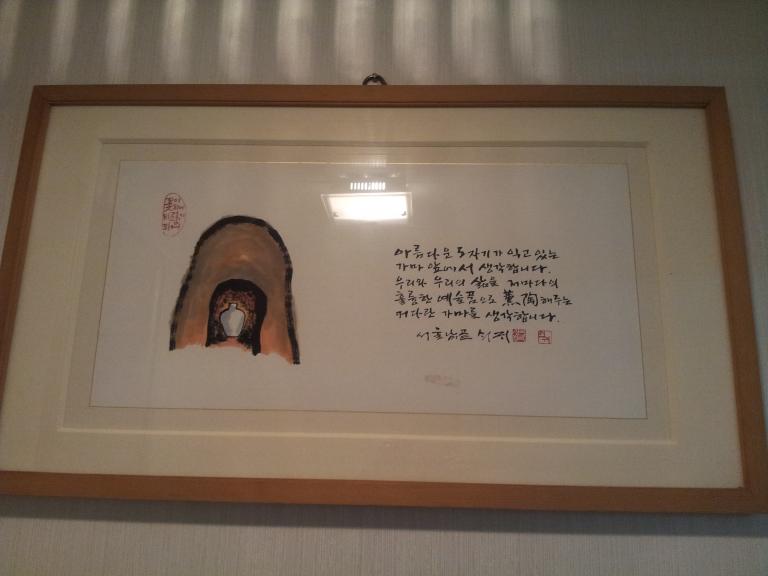 아름다운 도자기가 익고 있는
가마 앞에서 생각합니다.
우리와 우리의 삶을 저마다의
훌륭한 예술품으로 薰陶해주는
커다란 가마를 생각합니다.